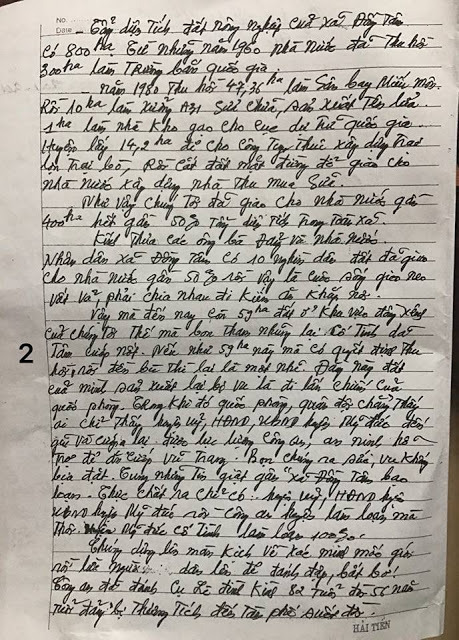 No.
Date
- Tổng diện tích đất nông nghiệp của xã Đồng Tâm
Có 800ha Từ những năm 1960 nhà nước đã thu hồi
300ha làm Trường bắn quốc gia.
- năm 1980 Thu hồi 47,36ha làm sân bay Miếu môn.
Rồi 10ha làm xưởng A31 sửa chữa, sản xuất tên lửa
1ha làm nhà kho gạo cho cục dự trữ quốc gia.
Huyện lấy 14,2ha để cho Công ty xây dựng trại
lợn trại bò, Rồi cắt đất mặt đường để giao cho
nhà nước xây dựng nhà thu mua sữa.
Như vậy chúng tôi đã giao cho nhà nước gần
400ha hết gần 50% tổng diện tích trong toàn xã.
Kính thưa các ông bà Đảng và nhà nước.
Nhân dân xã Đồng Tâm có 10 nghìn dân đất đã giao
cho nhà nước gần 50% rồi vậy là cuộc sống gieo neo
vất vả, phải chia nhau đi kiếm ăn khắp nơi.
Vậy mà đến nay còn 59ha đất ở khu vực đồng xênh
của chúng tôi Thế mà bọn tham nhũng lại cố tình dã
tâm cướp nốt. Nếu như 59ha này mà có quyết định thu
hồi rồi đền bù thì lại là một nhẽ. Đằng này đất
của mình sản xuất lại bị vu là đi lấn chiếm của
quốc phòng. Trong khi đó quốc phòng, quân đội chẳng thấy
ai chỉ thấy huyện uỷ, HĐND, UBND huyện Mỹ Đức đến
được lực lượng công an, an ninh hỗ
trợ để đi cùng vũ trang. Bọn chúng ra sức, vu khống
bịa đặt. Tung những tin giật gân "xã Đồng Tâm bạo
loạn. Thực chất ra chỉ có: huyện uỷ, HĐND huyện
UBND huyện Mỹ Đức rồi công an huyện làm loạn mà
thôi. Mỹ Đức cố tình làm loạn 100%.
Chúng dựng lên màn kịch về xác minh mốc giới
rồi lừa người dân lên để đánh đập, bắt bớ!
Công an đã đánh Cụ Lê đình Kình 82 tuổi đời 56 năm
tuổi đảng bị thương tích đến tàn phế suốt đời.
2
HẢI TIẾN